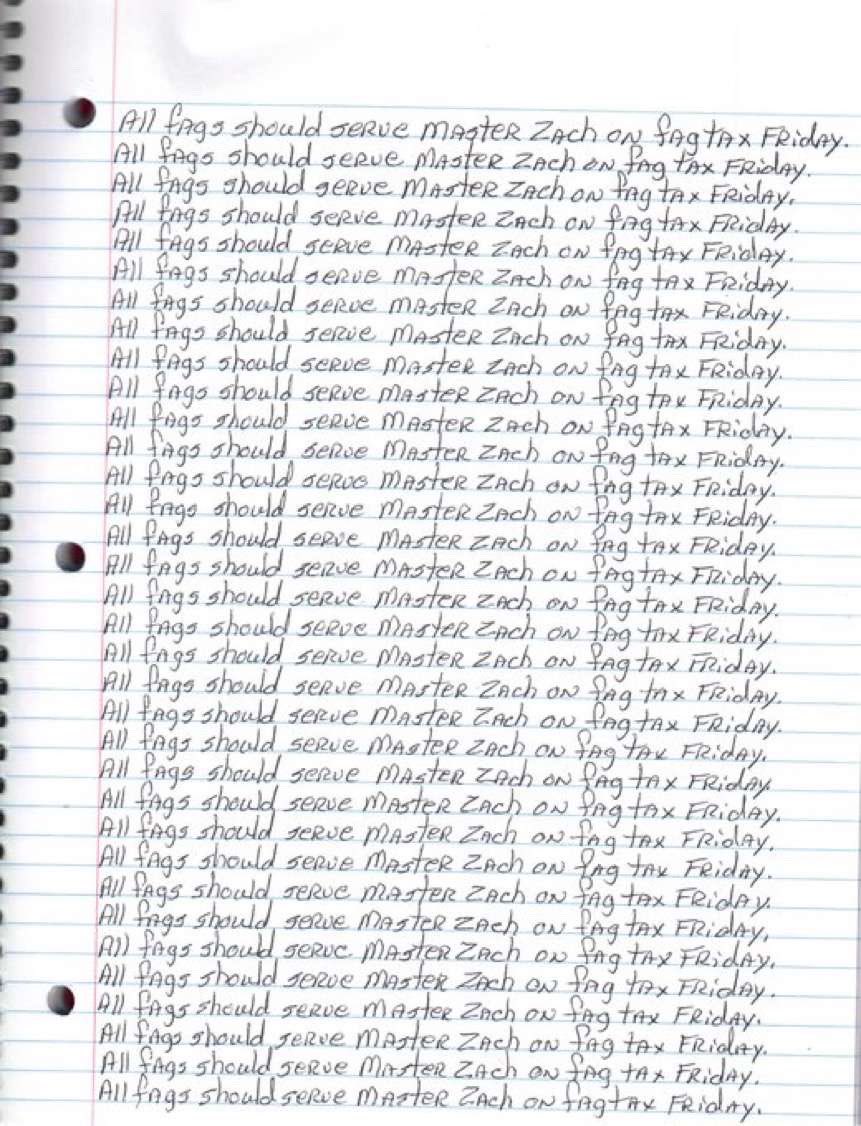 All fags should serve Master Zach on fag tax Friday.
All fags should serve Master Zach on fag tax Friday.
All fags should serve Master Zach on fag tax Friday.
All fags should serve Master Zach on fag tax Friday.
All fags should serve Master Zach on fag tax Friday.
All fags should serve Master Zach on fag tax Friday.
All fags should serve Master Zach on fag tax Friday.
All fags should serve Master Zach on fag tax Friday.
All fags should serve Master Zach on fag tax Friday.
All fags should serve Master Zach on fag tax Friday.
All fags should serve Master Zach on fag tax Friday.
All fags should serve Master Zach on fag tax Friday.
All fags should serve Master Zach on fag tax Friday.
All fags should serve Master Zach on fag tax Friday.
All fags should serve Master Zach on fag tax Friday.
All fags should serve Master Zach on fag tax Friday.
All fags should serve Master Zach on fag tax Friday.
All fags should serve Master Zach on fag tax Friday.
All fags should serve Master Zach on fag tax Friday.
All fags should serve Master Zach on fag tax Friday.
All fags should serve Master Zach on fag tax Friday.
All fags should serve Master Zach on fag tax Friday.
All fags should serve Master Zach on fag tax Friday
All fags should serve Master Zach on fag tax Friday.
All fags should serve Master Zach on fag tax Friday.
All fags should serve Master Zach on fag tax Friday.
All fags should serve Master Zach on fag tax Friday.
All fags should serve Master Zach on fag tax Friday.
All fags should serve Master Zach on fag tax Friday.
All fags should serve Master Zach on fag tax Friday.
All fags should serve Master Zach on fag tax Friday.
All fags should serve Master Zach on fag tax Friday.
All fags should serve Master Zach on fag tax Friday.
All fags should serve Master Zach on fag tax Friday.